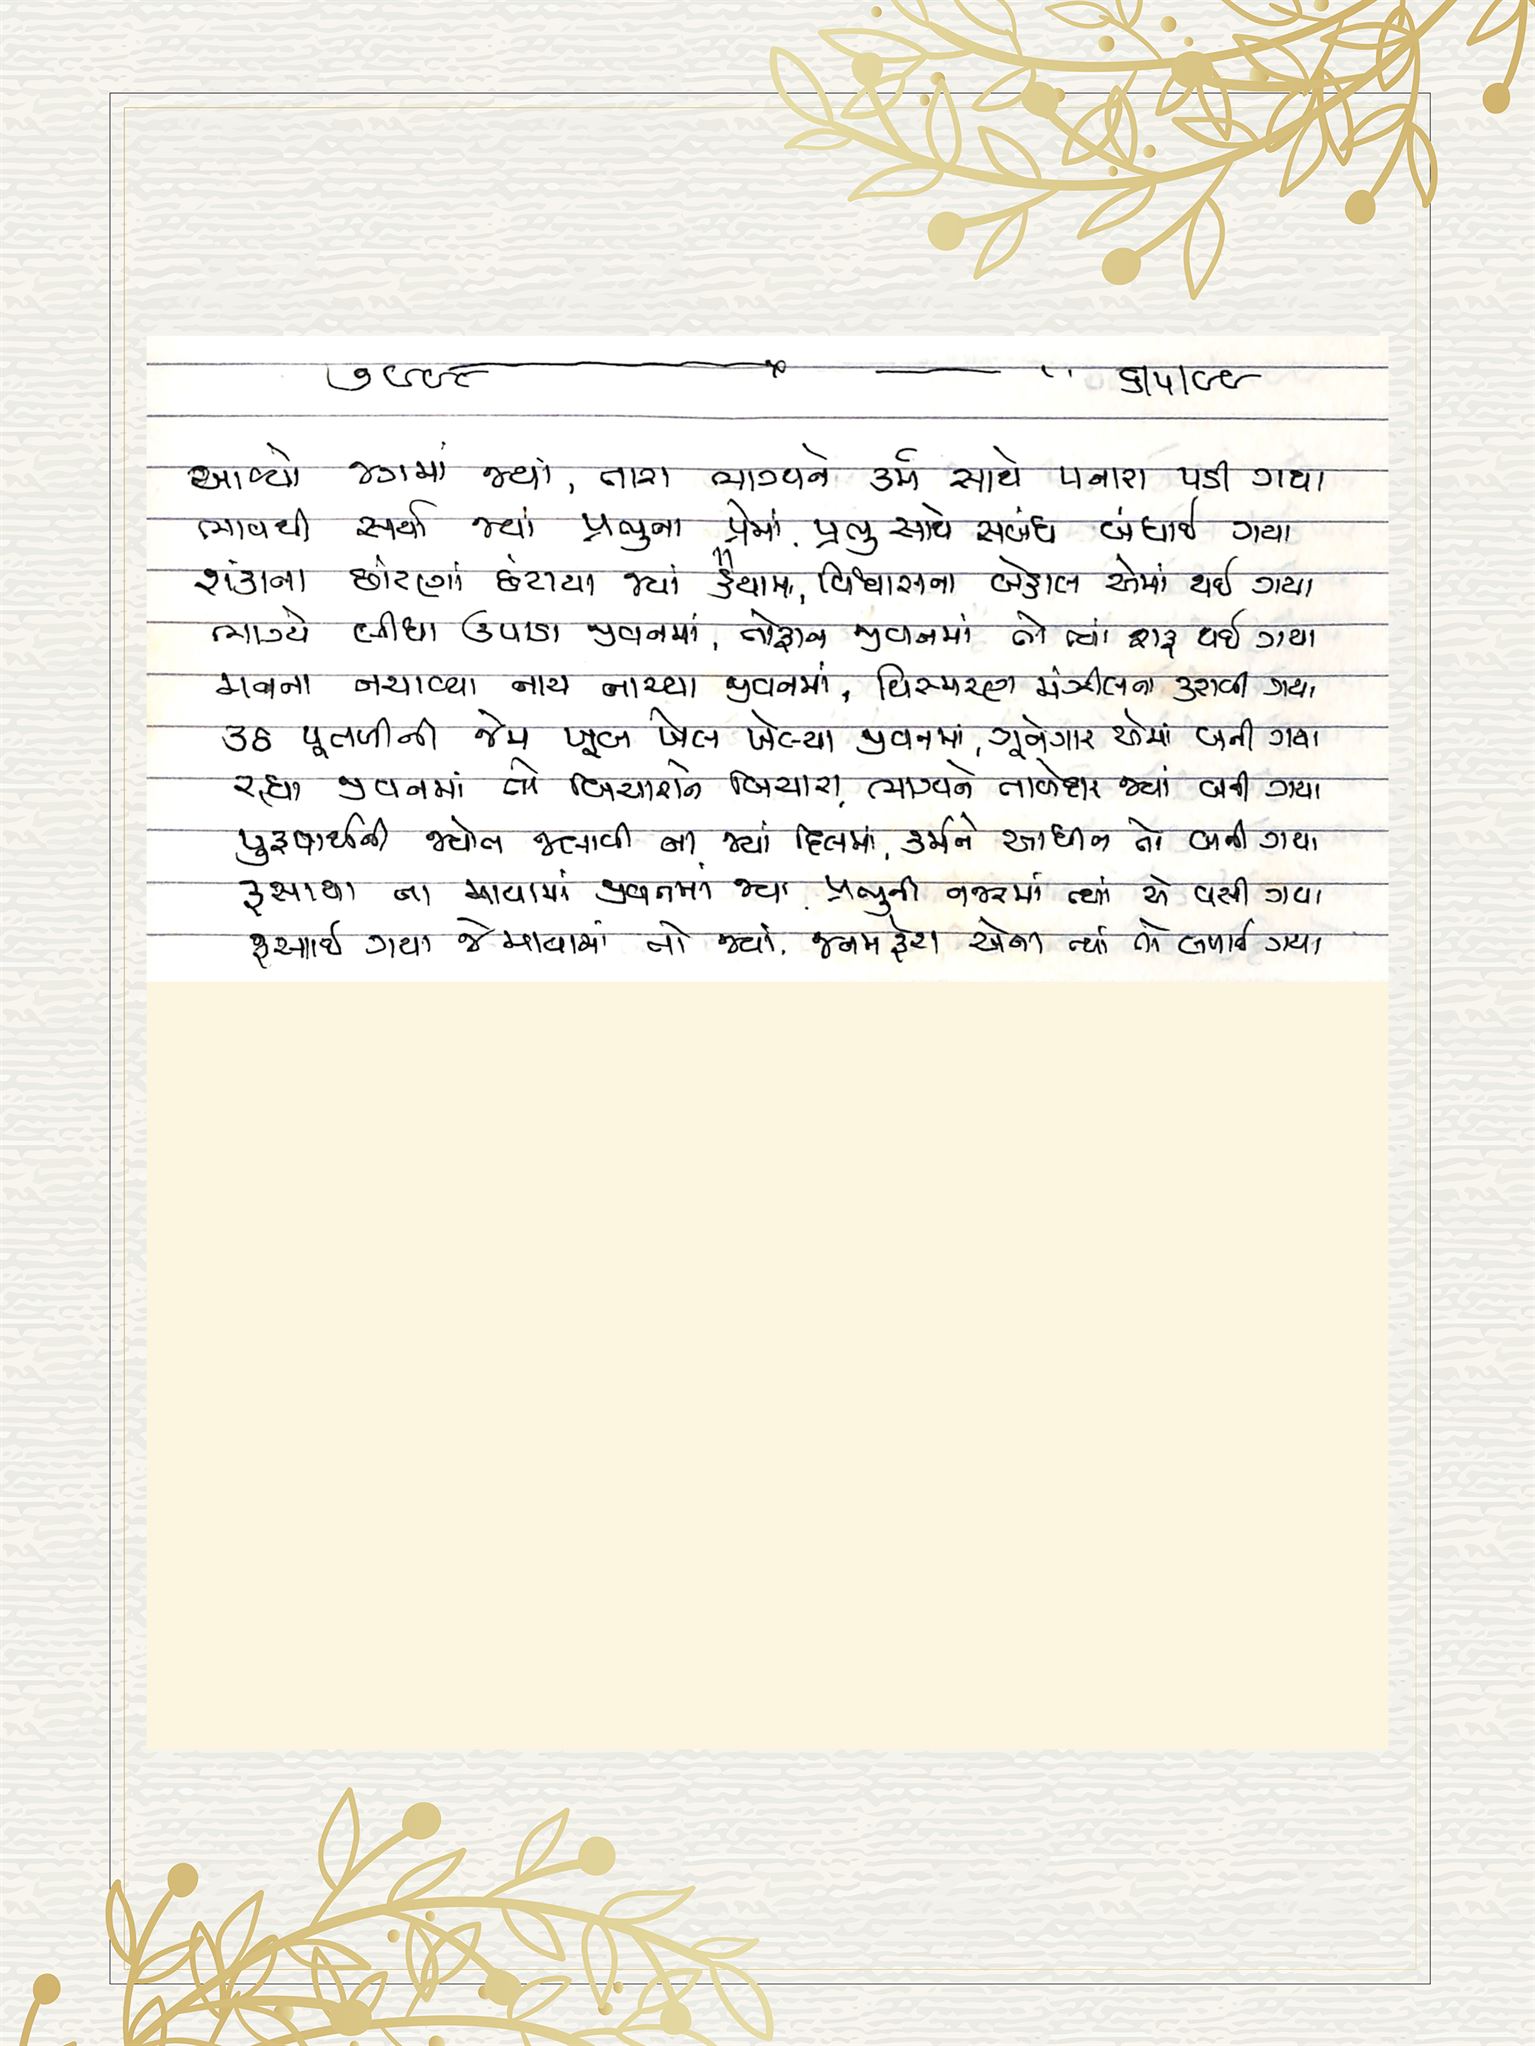 ૭૯૯૯ " ૬/૫/૯૯
આવ્યો જગમાં જ્યાં, તારા ભાગ્યને કર્મ સાથે પનારા પડી ગયા
ભાવથી સર્યા જ્યાં પ્રભુના પ્રેમમાં, પ્રભુ સાથે સબંધ બંધાઈ ગયા
શંકાના છાંટણાં છંટાયા જ્યાં હૈયામાં, વિશ્વાસના બેહાલ એમાં થઈ ગયા
ભાગ્યે લીધા ઉપાડા જીવનમાં, તોફાન જીવનમાં તો ત્યાં શરૂ થઈ ગયા
મનના નચાવ્યા નાચ નાચ્યા જીવનમાં, વિસ્મરણ મંઝીલના કરાવી ગયા
કઠ પૂતળીની જેમ ખૂબ ખેલ ખેલ્યા જીવનમાં, ગૂનેગાર એમાં બની ગયા
રહ્યા જીવનમાં તો બિચારાને બિચારા, ભાગ્યને તાબેદાર જ્યાં બની ગયા
પુરૂષાર્થની જ્યોત જલાવી ના જ્યાં દિલમાં, કર્મને આધીન તો બની ગયા
ફસાયા ના માયામાં જીવનમાં જ્યાં, પ્રભુની નજરમાં ત્યાં એ વસી ગયા
ફસાઈ ગયા જે માયામાં તો જ્યાં, જનમફેરા એના ત્યાં તો લખાઈ ગયા